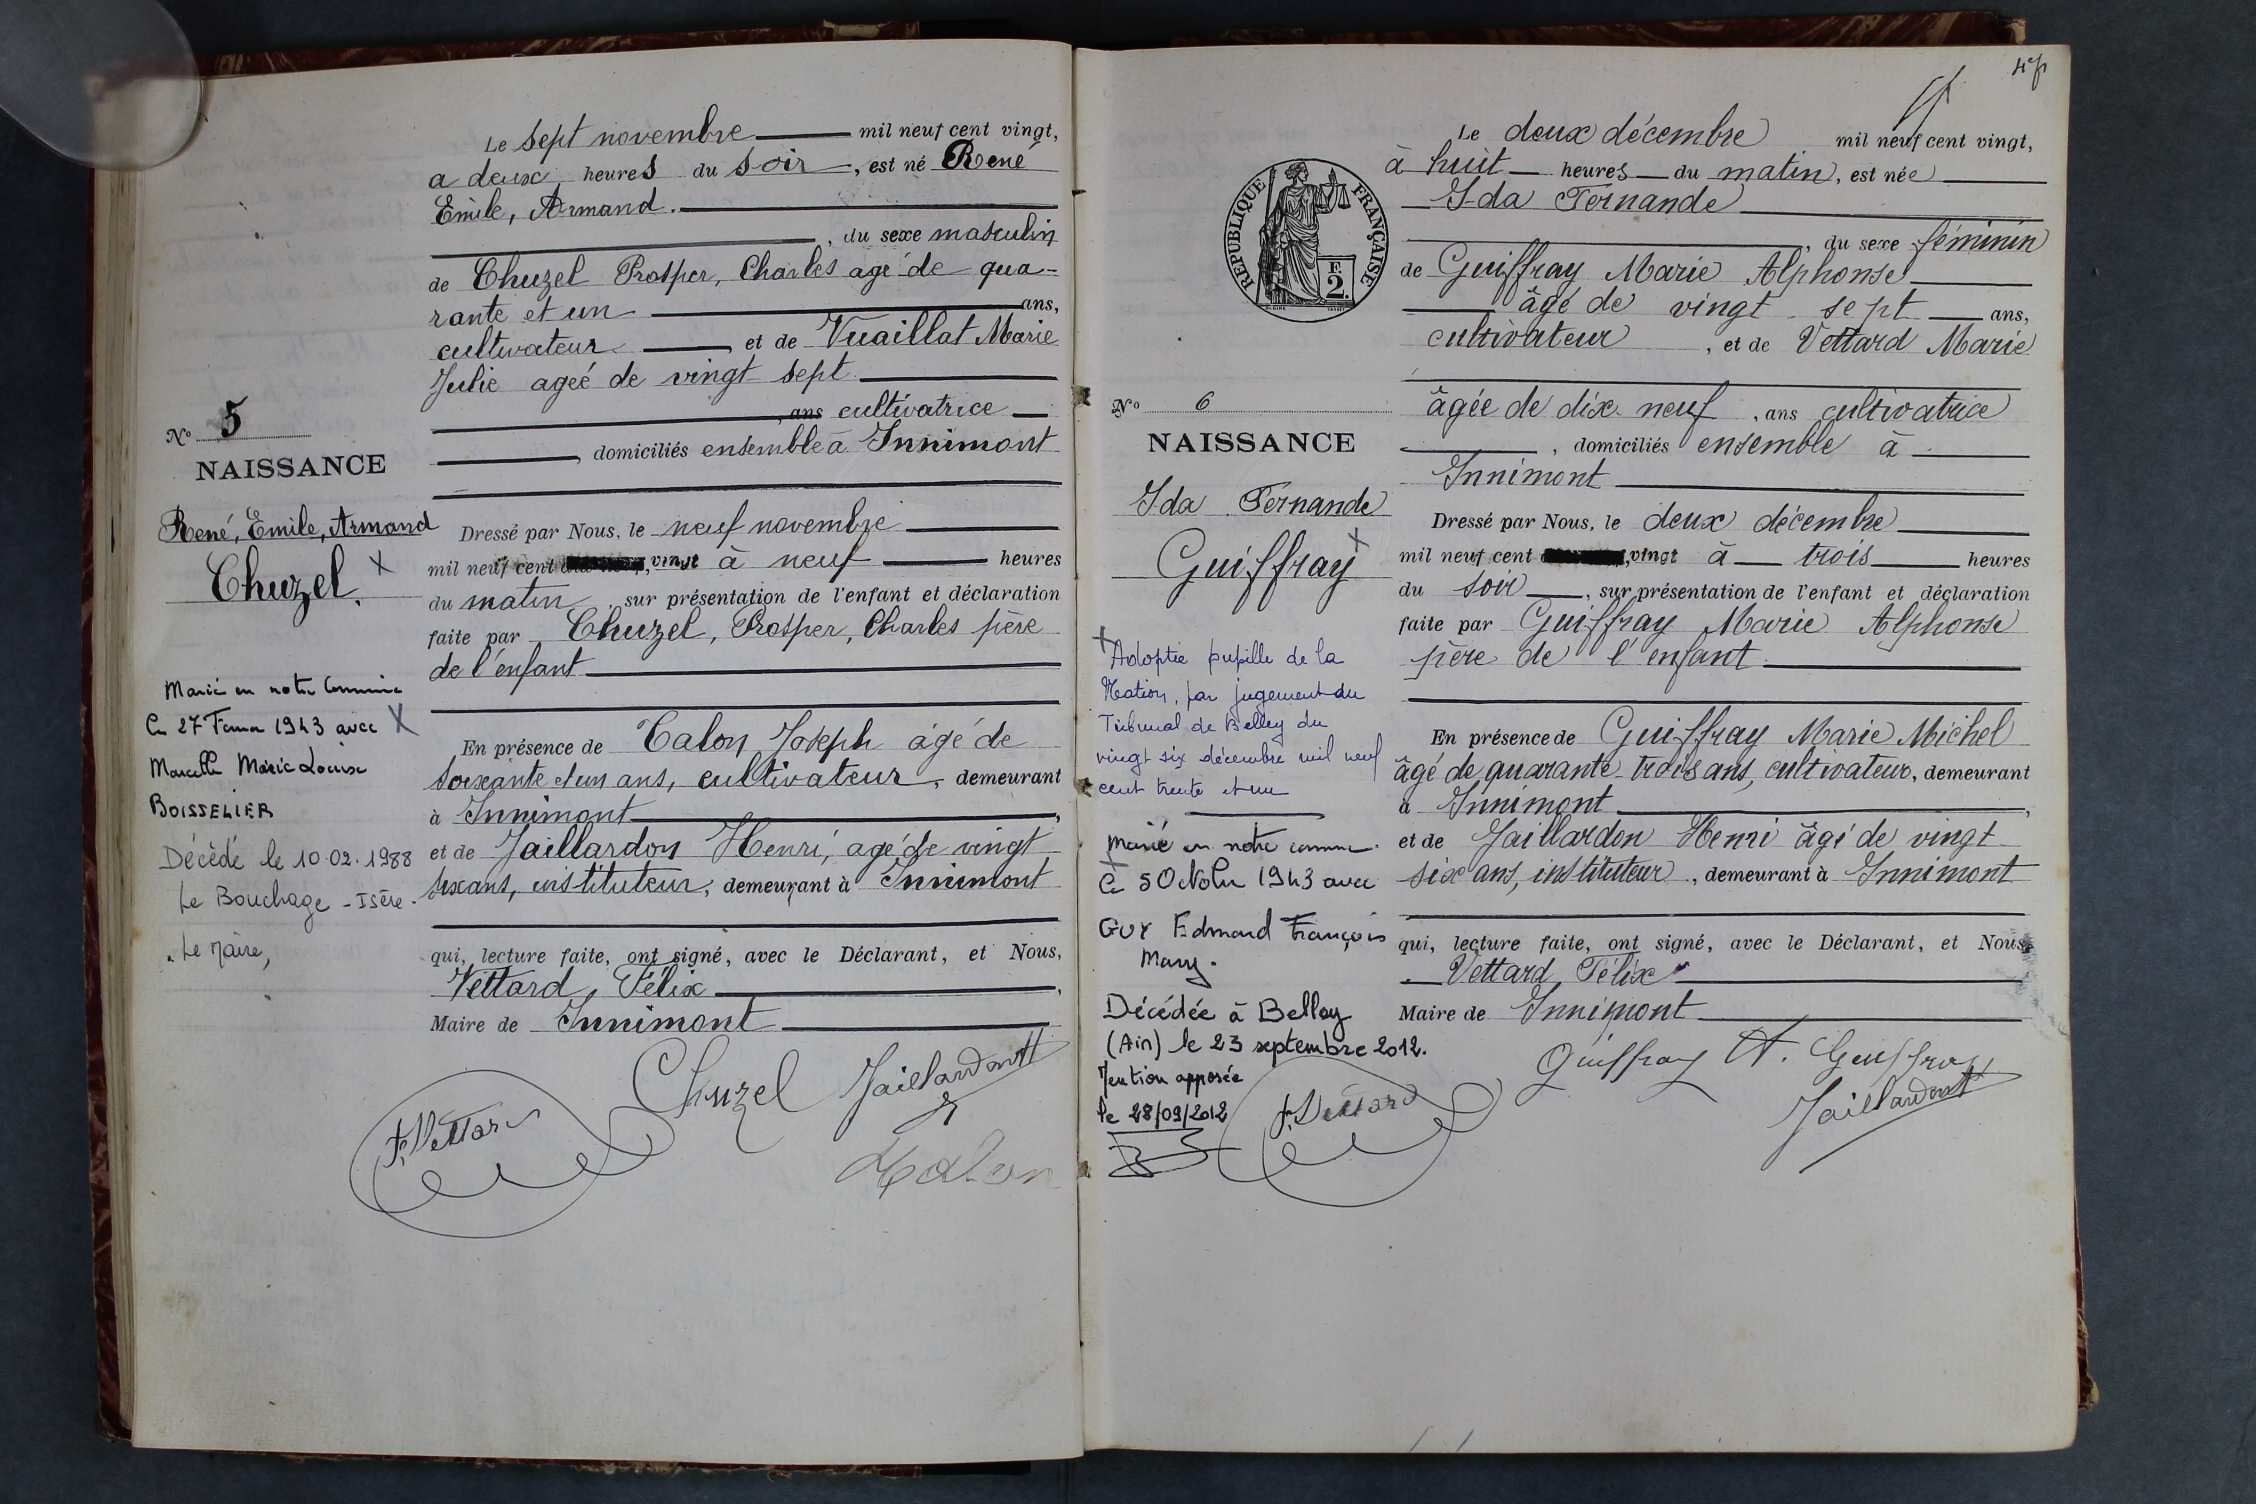 Le sept novembre mil neuf cent vingt,
a deux heures du soir, est né René
Emile, Armand.
, du sexe masculin
de Chuzel Prosper, Charles agé de qua-
rante et un ans,
cultivateur, et de Vuaillat Marie
Julie ageé de vingt sept
, ans cultivatrice
, domiciliés ensemble à Innimont
No 5
NAISSANCE
René, Emile, Armand
Chuzel. X
Dressé par Nous, le neuf novembre
mil neuf cent, vingt à neuf heures
du matin, sur présentation de l'enfant et déclaration
faite par Chuzel, Prosper, Charles père
de l'enfant
En présence de Talon Joseph agé de
soixante et un ans, cultivateur, demeurant
à Innimont,
et de Jaillardon Henri, agé de vingt
six ans, instituteur, demeurant à Innimont
qui, lecture faite, ont signé, avec le Déclarant, et Nous,
Vettard, Félix,
Maire de Innimont
Marié en notre Commune
le 27 1943 avec X
Marcelle Marie Louise
BOISSELIER
Décédé le 10.02.1988
Le Bouchage - Isère.
Le Maire,
Chuzel Jaillardon H
F. Vettard
Talon
Le deux décembre mil neuf cent vingt,
à huit heures du matin, est née
Ida Fernande
, du sexe féminin
de Guiffray Marie Alphonse
âgé de vingt sept ans,
cultivateur, et de Vettard Marie
âgée de dix neuf, ans cultivatrice
, domiciliés ensemble à
Innimont
No 6
NAISSANCE
Ida Fernande
Guiffray X
RÉPUBLIQUE FRANÇAISE
F.
2.
Dressé par Nous, le deux décembre
mil neuf cent, vingt à trois heures
du soir, sur présentation de l'enfant et déclaration
faite par Guiffray Marie Alphonse
père de l'enfant
En présence de Guiffray Marie Michel
âgé de quarante-trois ans, cultivateur, demeurant
à Innimont,
et de Jaillardon Henri âgé de vingt
six ans, instituteur, demeurant à Innimont
qui, lecture faite, ont signé, avec le Déclarant, et Nous,
Vettard, Félix
Maire de Innimont
X Adoptée pupille de la
Nation, par jugement du
Tribunal de Belley du
vingt six décembre mil neuf
cent trente et un
Marié en notre commune
X le 5 Octobre 1943 avec
GUY Edmond François
Mary.
Décédée à Belley
(Ain) le 23 septembre 2012.
Mention apposée
le 28/09/2012
F. Vettard
Guiffray A. Guiffray
Jaillardon H